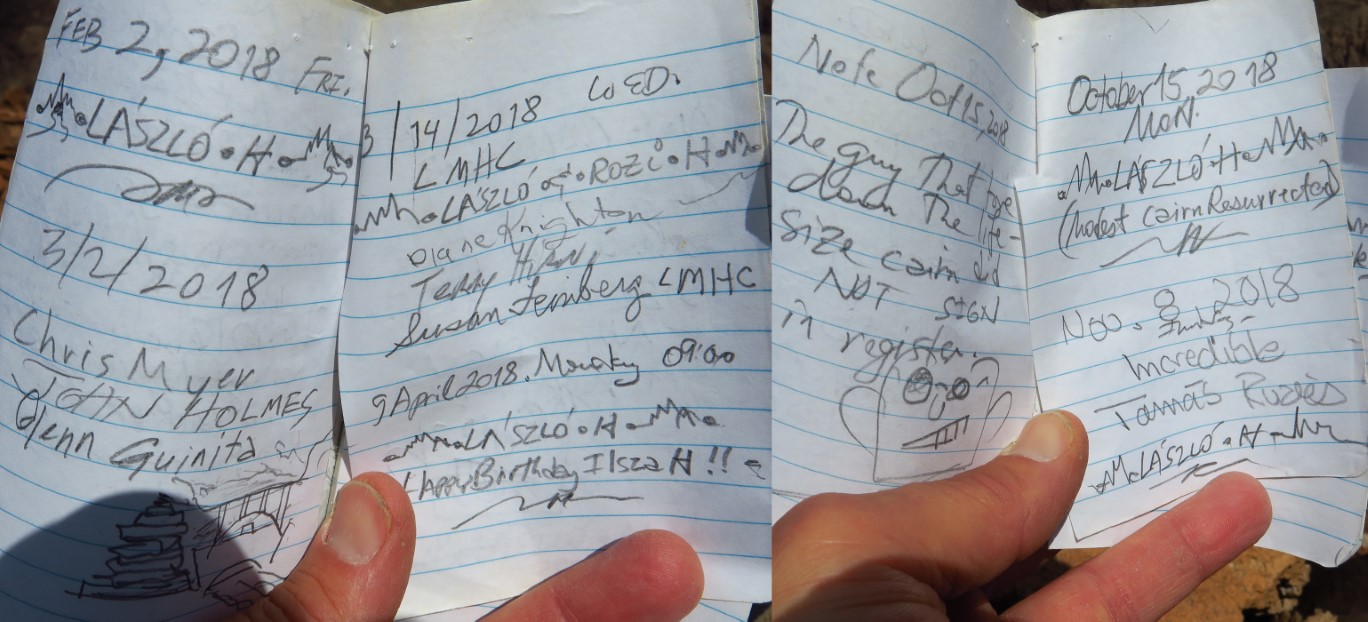 FEB 2, 2018 FRI.
LÁSZLÓ • H •
3/2/2018
Chris Myer
JOHN HOLMES
Glenn Guinita
3/14/2018 WED.
LMHC
LÁSZLÓ • ROZI • H
Diane Knighton
Terry
Susan LMHC
9 April 2018. Monday 09:00
LÁSZLÓ • H •
HAppy Birthday Ilsza H!!
Note Oct 15, 2018
The guy That tore
down The life-
size cairn did
NOT SIGN
in register.
October 15, 2018
MON.
LÁSZLÓ • H •
(Modest cairn Resurrected)
Nov. 8 2018
Incredible
Tamás
LÁSZLÓ • H